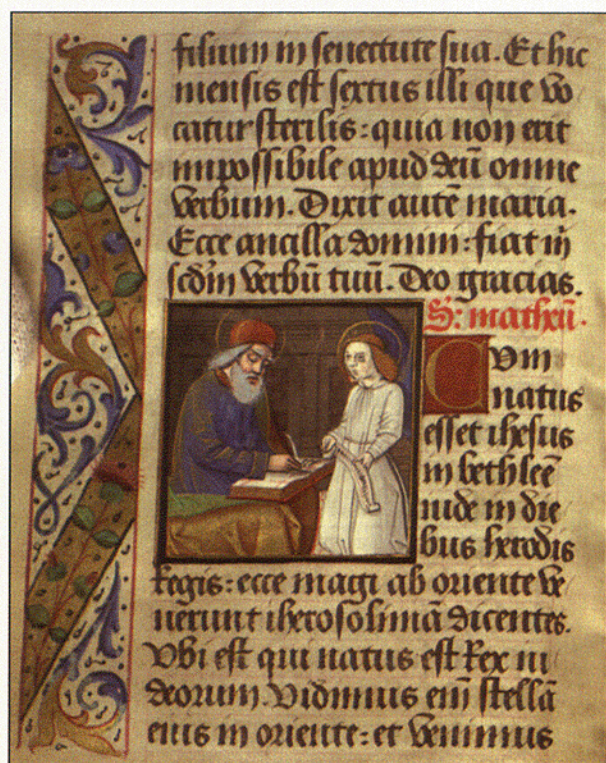 filium in senectute sua. Et hic
mensis est sextus illi que vo
catur sterilis: quia non erit
impossibile apud deū omne
verbum. Dixit autē maria.
Ecce ancilla domini: fiat m̄
scd̄m verbū tuū. Deo gracias.
S: matheū.
Cum
natus
esset ihesus
in bethleē
iude in die
bus herodis
Regis: ecce magi ab oriente ve
nerunt iherosolimā dicentes.
Vbi est qui natus est Rex iu
deorum. Vidimus eni̅ stellā
eius in oriente: et venimus